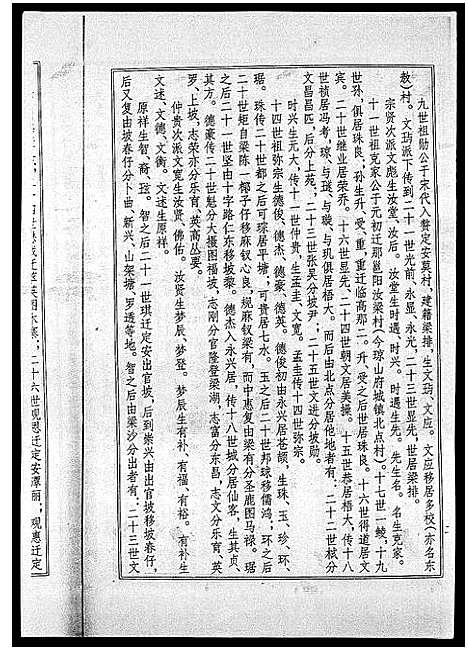 九世祖勋公于宋代入赘定安莫村、建籍梁排,生文玚、文应。文应移居多校(亦名东
敖)村。文玚派下传到二十一世光前、永显、永光,二十三世显先,世居梁排。
宗贤次派文彪生汝堂、汝后。汝堂生时遇、时兴。时遇生先。先生名。名生克家。
十一世祖克家公于元初迁那邕阳汝梁村(今琼山府城镇北点村)。十七世一鲮,十九
世孙,俱居珠良;孙生升、受、重,重迁临高那二。升、受之后世居珠良。十六世得道居文
宾。二十世继业居荣乔。十六世显先、二十四世朝文居美操。十五世恭居梧大,传十八
世祯居冯考,琼、与琏、与璇、与玑俱居梧大。而后由北点分居他地者有:二十二世栻分
文昌昌匹,后分上苑。二十三世张吴分坡尹;二十五世文进分坡勋。
时兴生元大,传十一世仲贵,生孟圭、文宽。孟圭传十四世弥宗。
十四世祖弥宗生德俊、德杰、德豪、德英。德俊初由永兴居苍颉,生珠、玉、珍、环、
琚。珠传二十世都之后可琮居平塘,可贵居七水。玉之后二十世邦球移儒鸿;环之后
二十世矩自梁陈一椰子仔移麻钗心良,规麻钗梁有,而中惠复由梁有分圣鹿图马禄。琚
之后二十一世坚由十字路仁东移坡黎。德杰入永兴居,传十八世城分居仙客,生其贞、
其方。德豪传二十世魁分大摄图福坡,志刚分官隆登梁湖,志富分东昌,志文分乐育、英
罗、上坡,志荣亦分乐育、英高丛要。
仲贵次派文宽生汝贤、佛佑。汝贤生梦辰、梦登。梦辰生有补、有福、有裕。有补生
文述、文德、文衡。文述生原祥。
原祥生智、裔、琼。智之后二十一世琪迁定安出官坡,后到崇兴由出官坡移坡春仔,
后又复由坡春仔分卜曲、新兴、山架塘、罗透等地。智之后由梁沙分出者有:二十三世文
二十六世观恩迁定安潭丽;观惠迁定